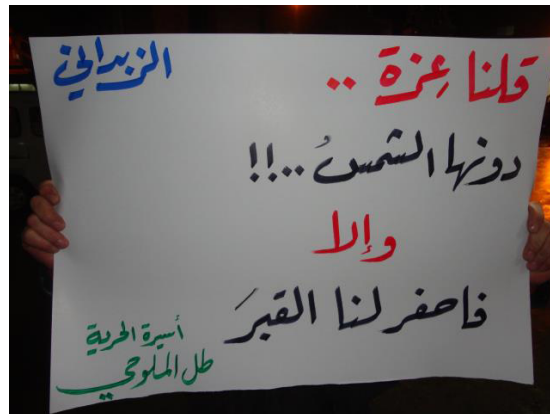 الزبداني
قلنا عِزة ..
دونها الشمسُ ..!!
وإلا
فاحفر لنا القبرَ
أسيرة الحرية
طل الملوحي